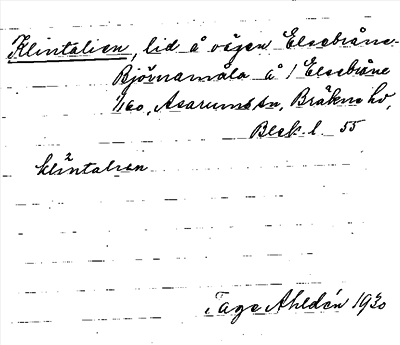 Klintalien, lid å vägen Elsebråne-
Björnamåla å 1 Elsebråne
1/160, Asarums sn, Bräkne hd,
Blek. l. 55
klintalien
Tage Ahldén 1930